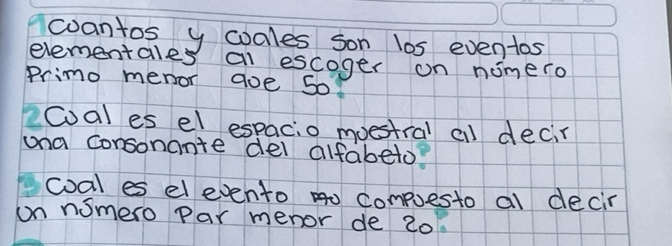 1 Cuantos y cuales son los eventos
elementales al escoger un número
Primo menor que 50?
2 Cual es el espacio muestral al decir
una consonante del alfabeto?
3 Cual es el evento compuesto al decir
un número Par menor de 20.